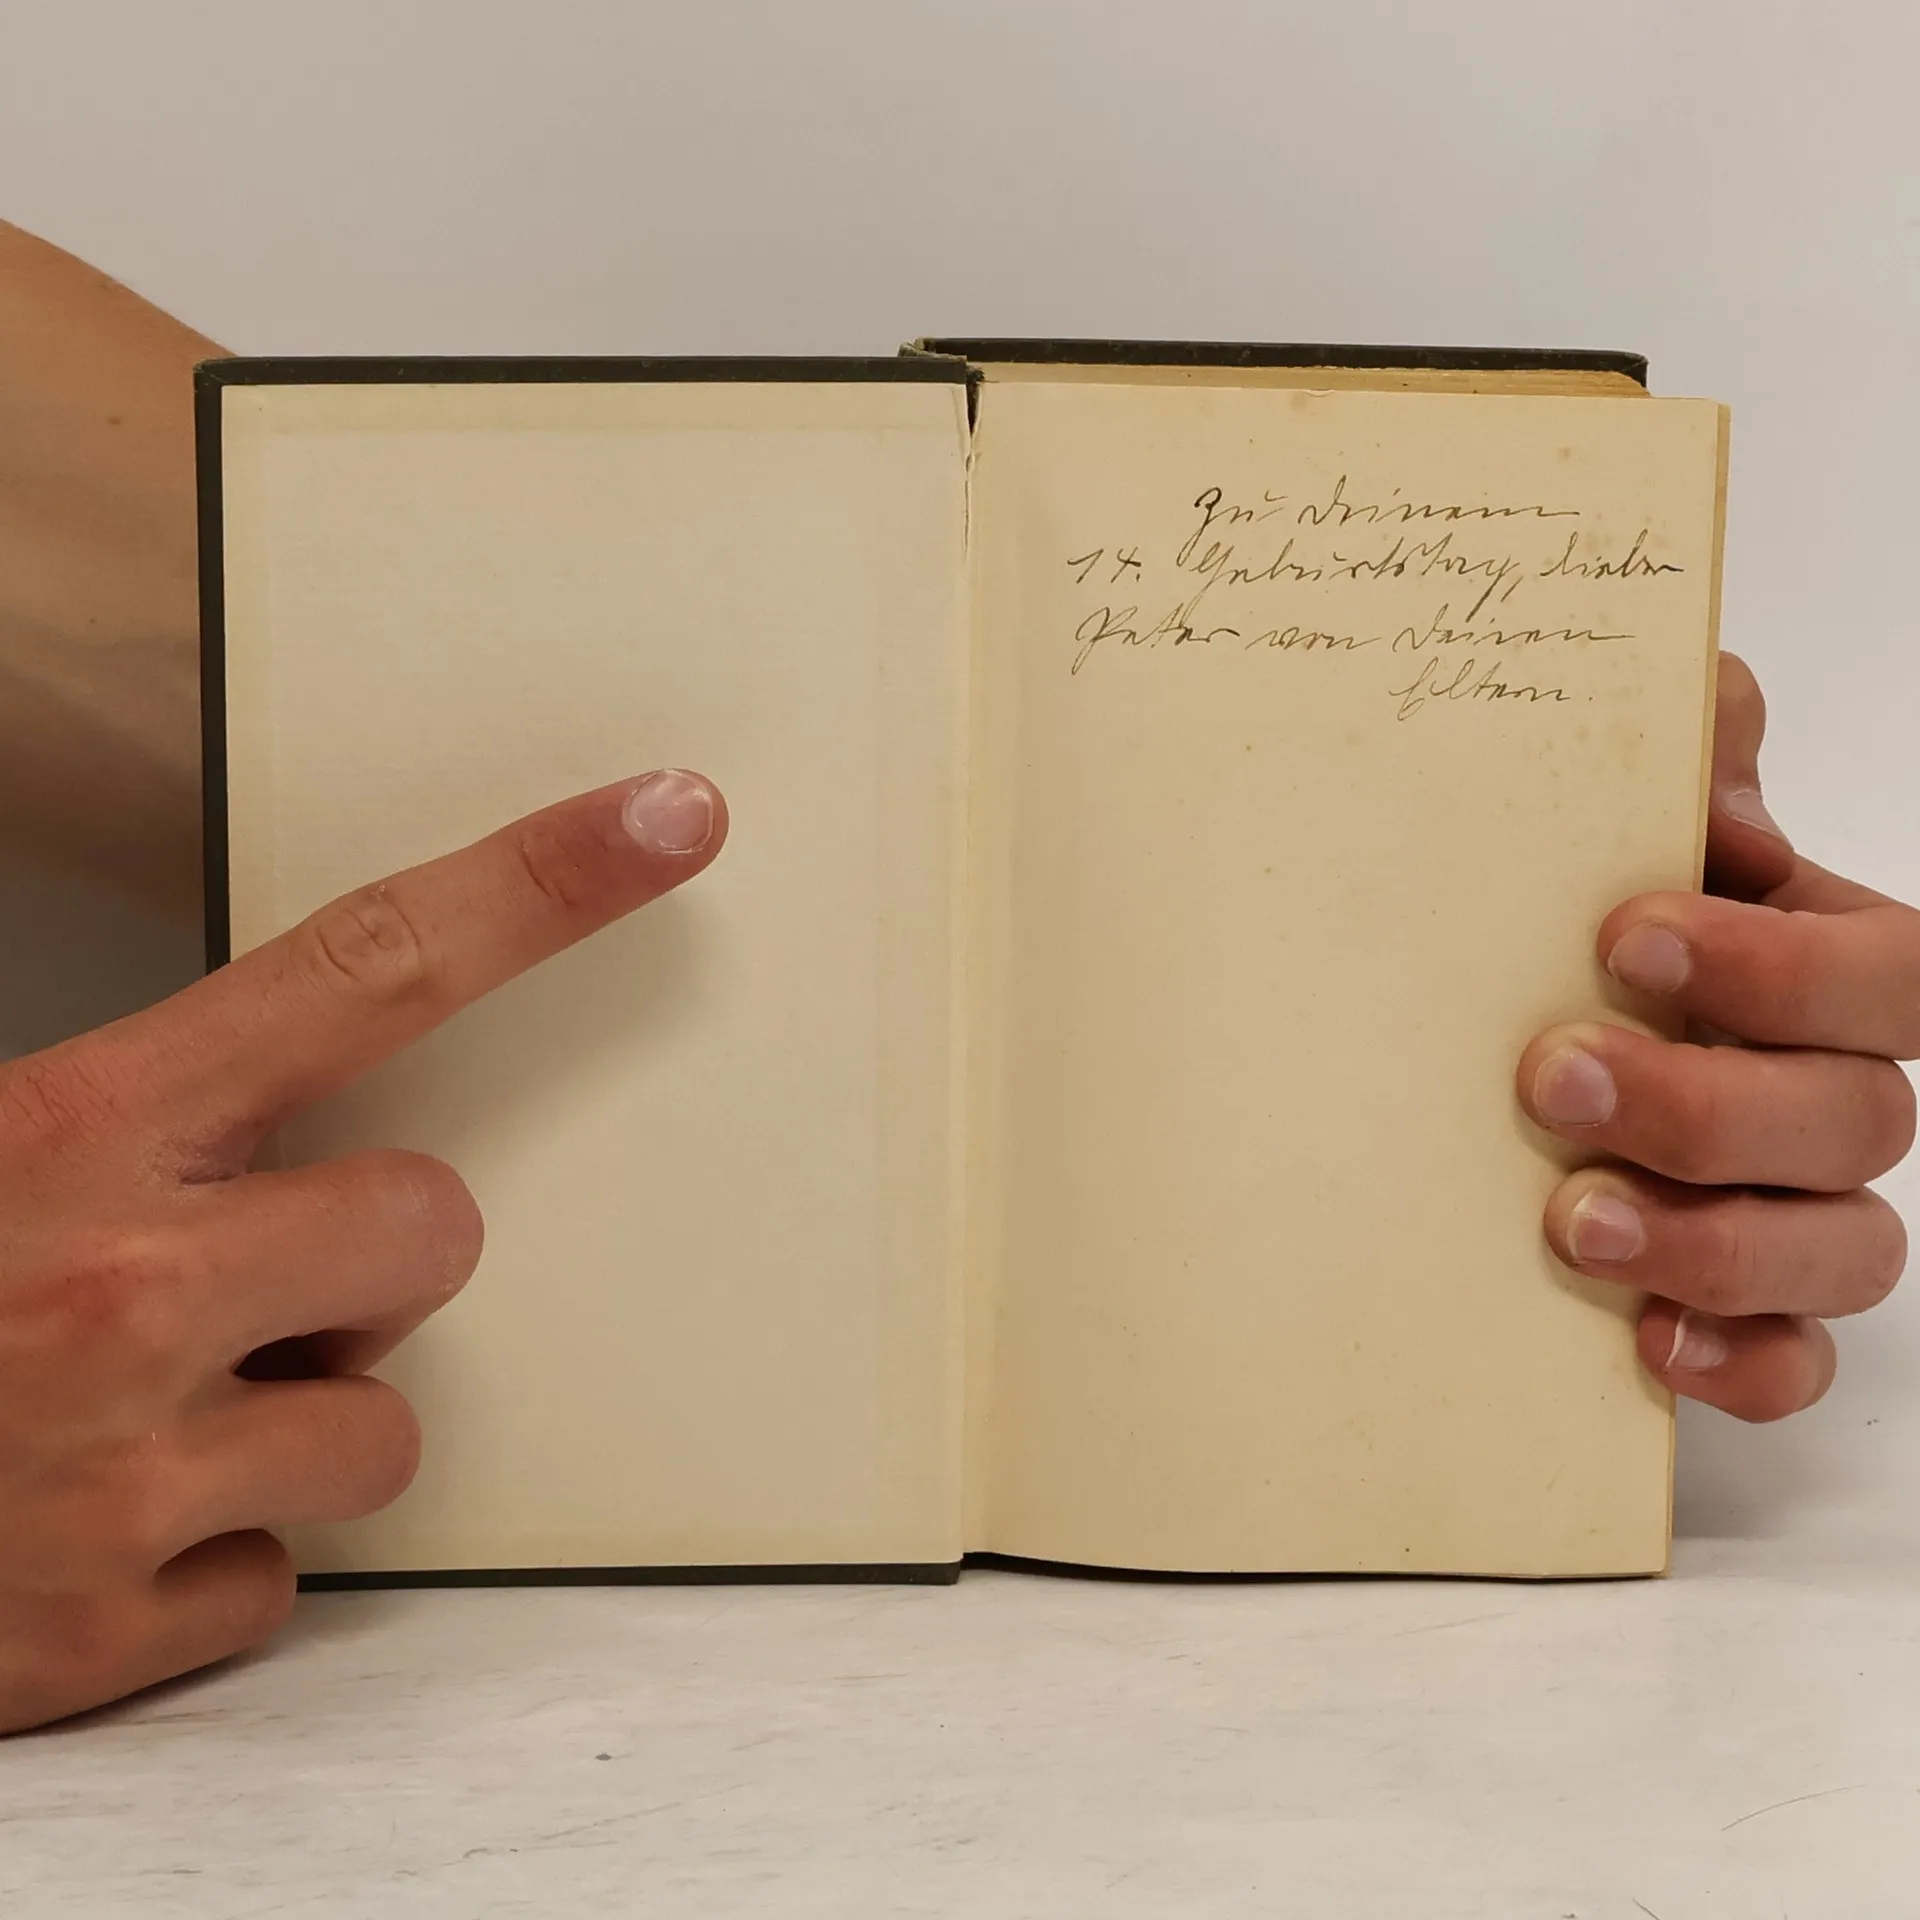 Zu Deinem
14. Geburtstag, lieber
Peter von Deinen
Eltern.